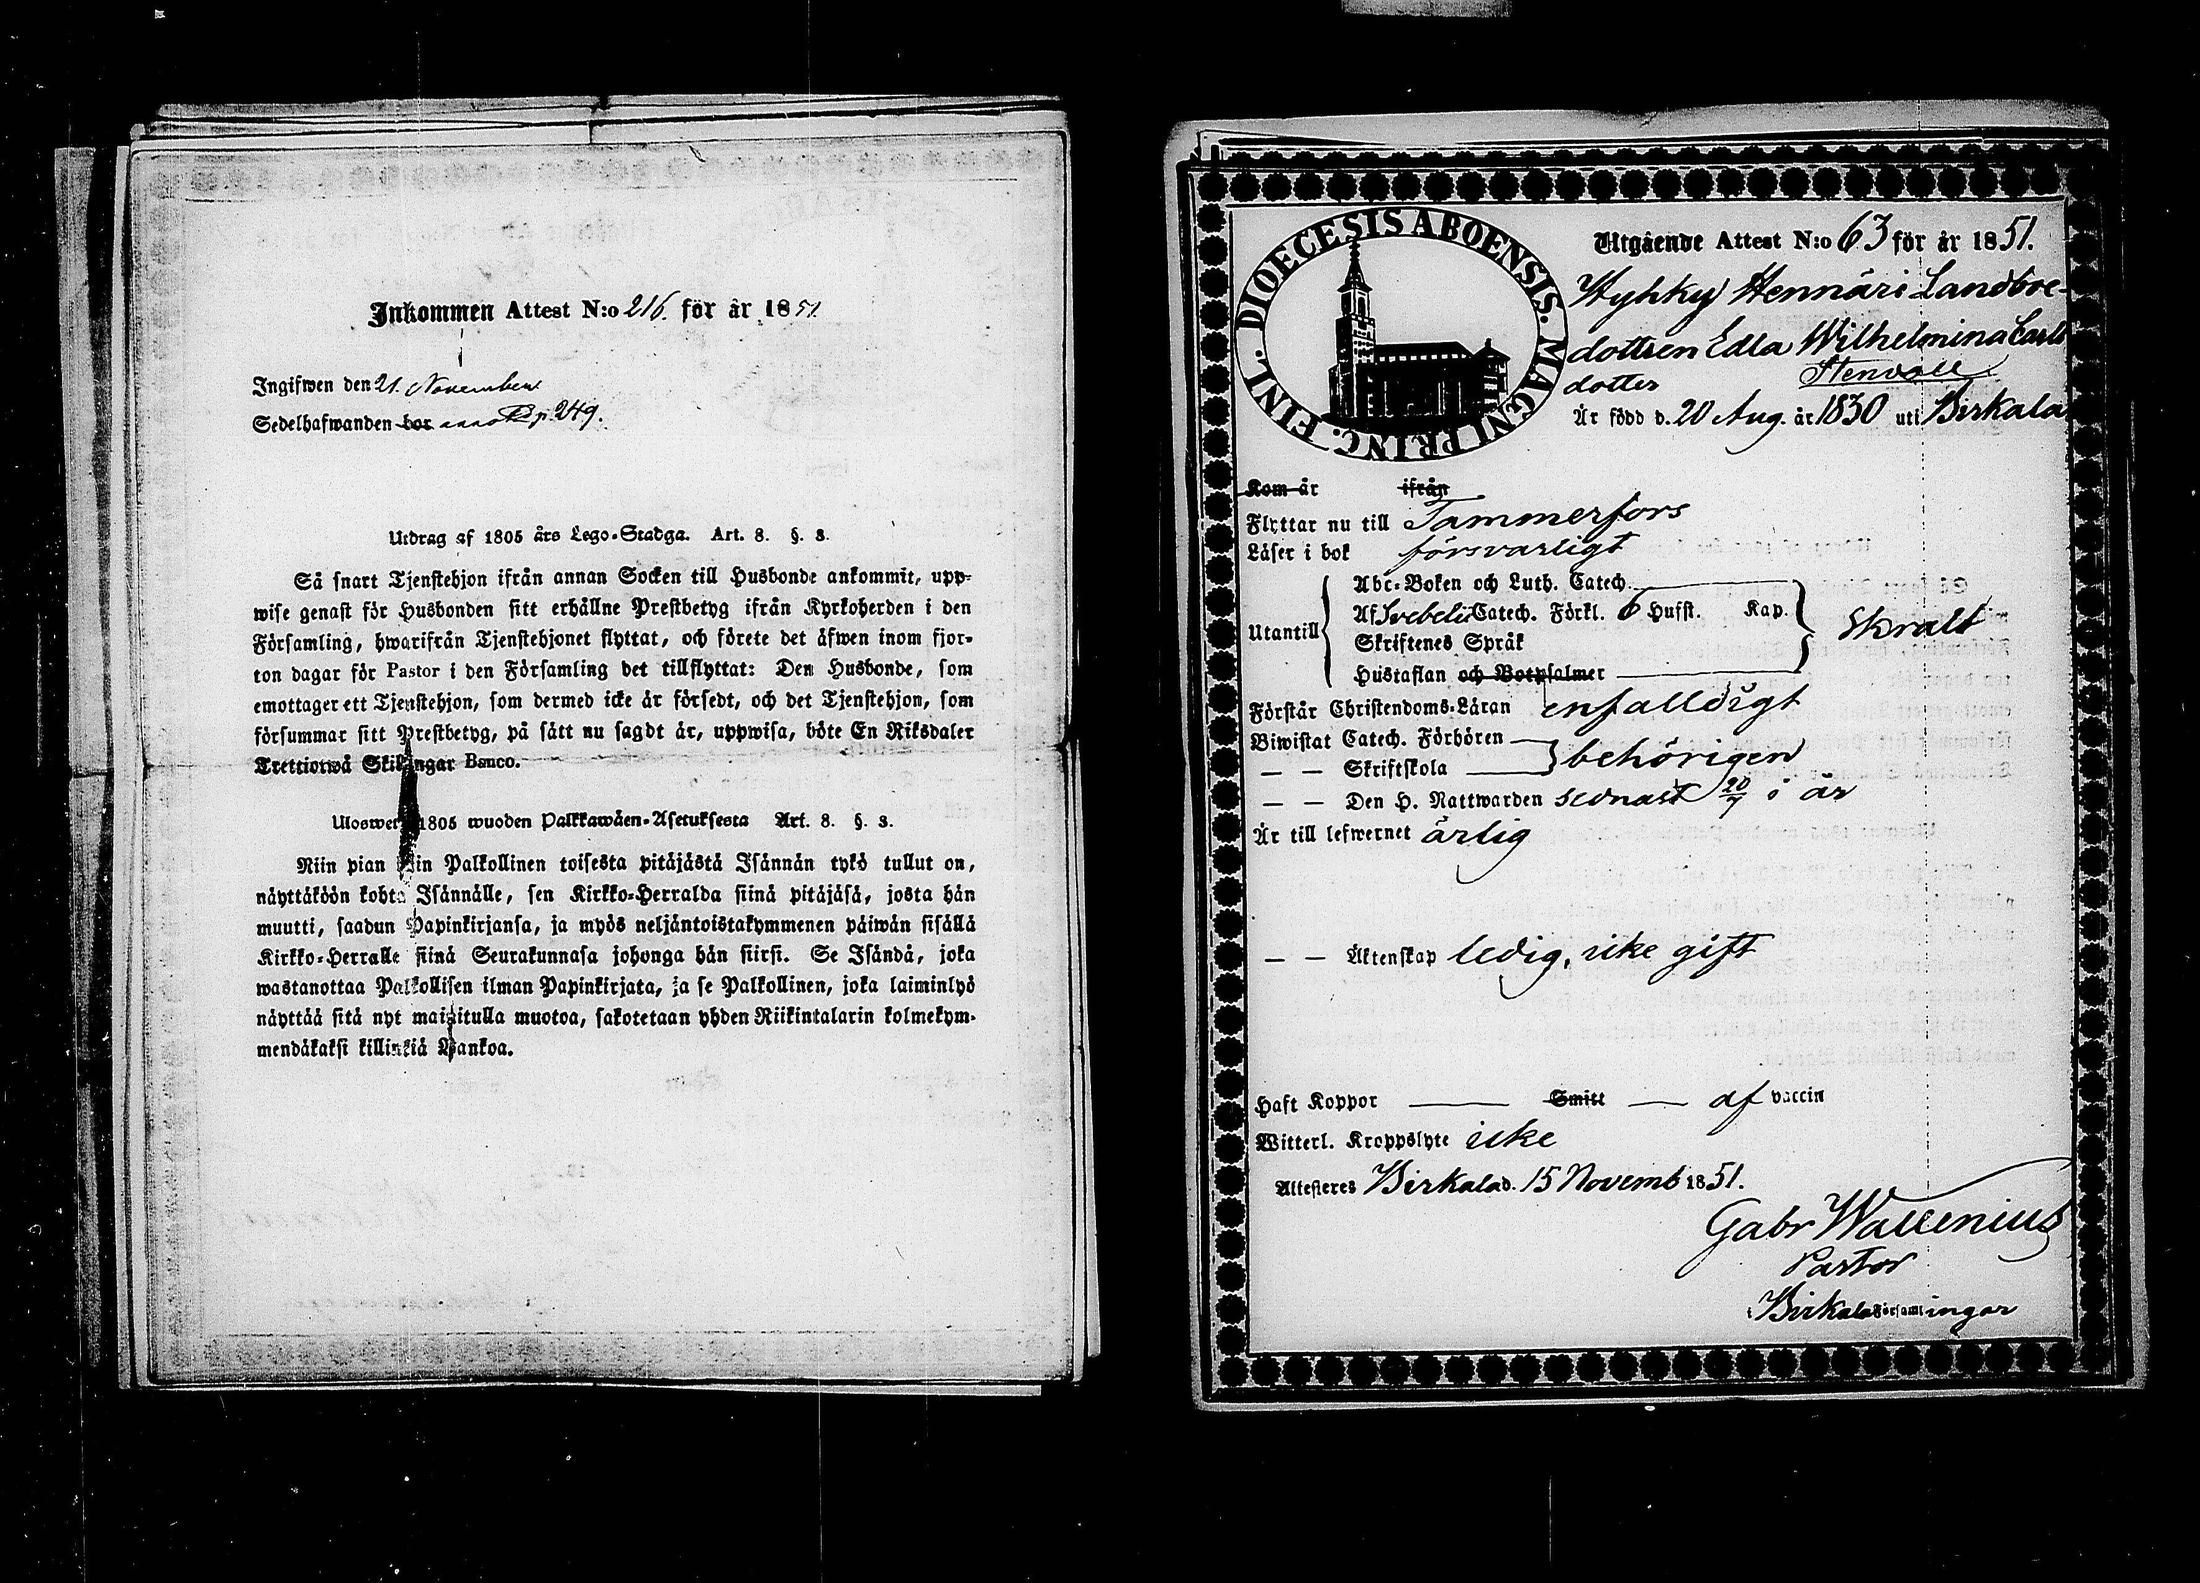 Inkommen Attest N:o 216. för år 1851.
Ingifwen den 21. November
Sedelhafwanden bor p. 249.
Utdrag af 1805 års Lego-Stadga. Art. 8. §. 8.
Så snart Tjenstehjon ifrån annan Socken till Husbonde ankommit, upp-
wise genast för Husbonden sitt erhållne Prestbetyg ifrån Kyrkoherden i den
Församling, hwarifrån Tjenstehjonet flyttat, och förete det äfwen inom fjor-
ton dagar för Pastor i den Församling det tillflyttat: Den Husbonde, som
emottager ett Tjenstehjon, som dermed icke är försedt, och det Tjenstehjon, som
försummar sitt Prestbetyg, på sätt nu sagdt är, uppwisa, böte En Riksdaler
Trettiotwå Skillingar Banco.
Uloswet 1805 wuoden Palkkawäen-Asetuksesta Art. 8. §. 8.
Niin pian kuin Palkollinen toisesta pitäjästä Isännän tykö tullut on,
näyttäköön kohta Isännälle, sen Kirkko-Herralda siinä pitäjäsä, josta hän
muutti, saadun Papinkirjansa, ja myös neljäntoistakymmenen päiwän sisällä
Kirkko-Herralle siinä Seurakunnasa johonga hän siirsi. Se Isändä, joka
wastanottaa Palkollisen ilman Papinkirjata, ja se Palkollinen, joka laiminlyö
näyttää sitä nyt mainitulla muotoa, sakotetaan yhden Riikintalarin kolmekym-
mendäkaksi killinkiä Bankoa.
FINL. DIOECESIS ABOENSIS. MAGNI PRINC.
Utgående Attest N:o 63 för år 1851.
Hyhky Hennäri Landboe-
dottren Edla Wilhelmina Carls
dotter Stenvall
Är född d. 20 Aug. år 1830 uti Birkala
Kom år ifrån
Flyttar nu till Tammerfors
Läser i bok försvarligt
Utantill
Abc-Boken och Luth. Catech.
Af Svebelii Catech. Förkl. 6 Hufst. Kap.
Skriftenes Språk
Hustaflan och Botpsalmer
Skralt
Förstår Christendoms-Läran enfalldigt
Biwistat Catech. Förhören
— — Skriftskola behörigen
— — Den H. Nattwarden sednast 20/7 i år
Är till lefwernet ärlig
— — Äktenskap ledig, icke gift
Haft Koppor Smitt af vaccin
Witterl. Kroppslyte icke
Attesteres Birkala d. 15 Novemb 1851.
Gabr Wallenius
Pastor
i Birkala Församlingar